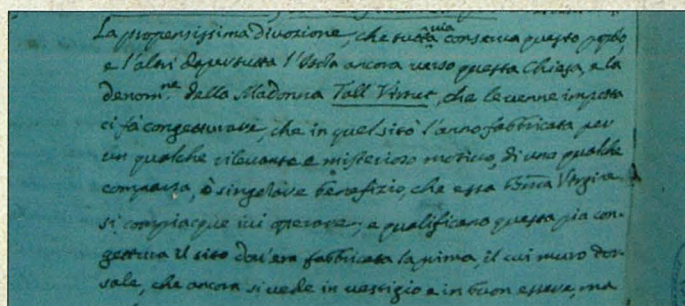 La propensissima divozione, che tutta via conserva questo popolo,
e l'altri da per tutta l'Isola ancora verso questa Chiesa, e la
denom.ne della Madonna Tall Virtut, che le venne imposta
ci fà congetturare, che in quel sito l'anno fabbricata per
un qualche rilevante e misterioso motivo, di una qualche
comparsa, ò singolare benefizio, che essa Bma Vergine
si compiacque ivi operare; e qualificano questa pia con-
gettura il sito dov'era fabbricata la prima, il cui muro dor-
sale, che ancora si vede in vestigio e in buon essere, ma